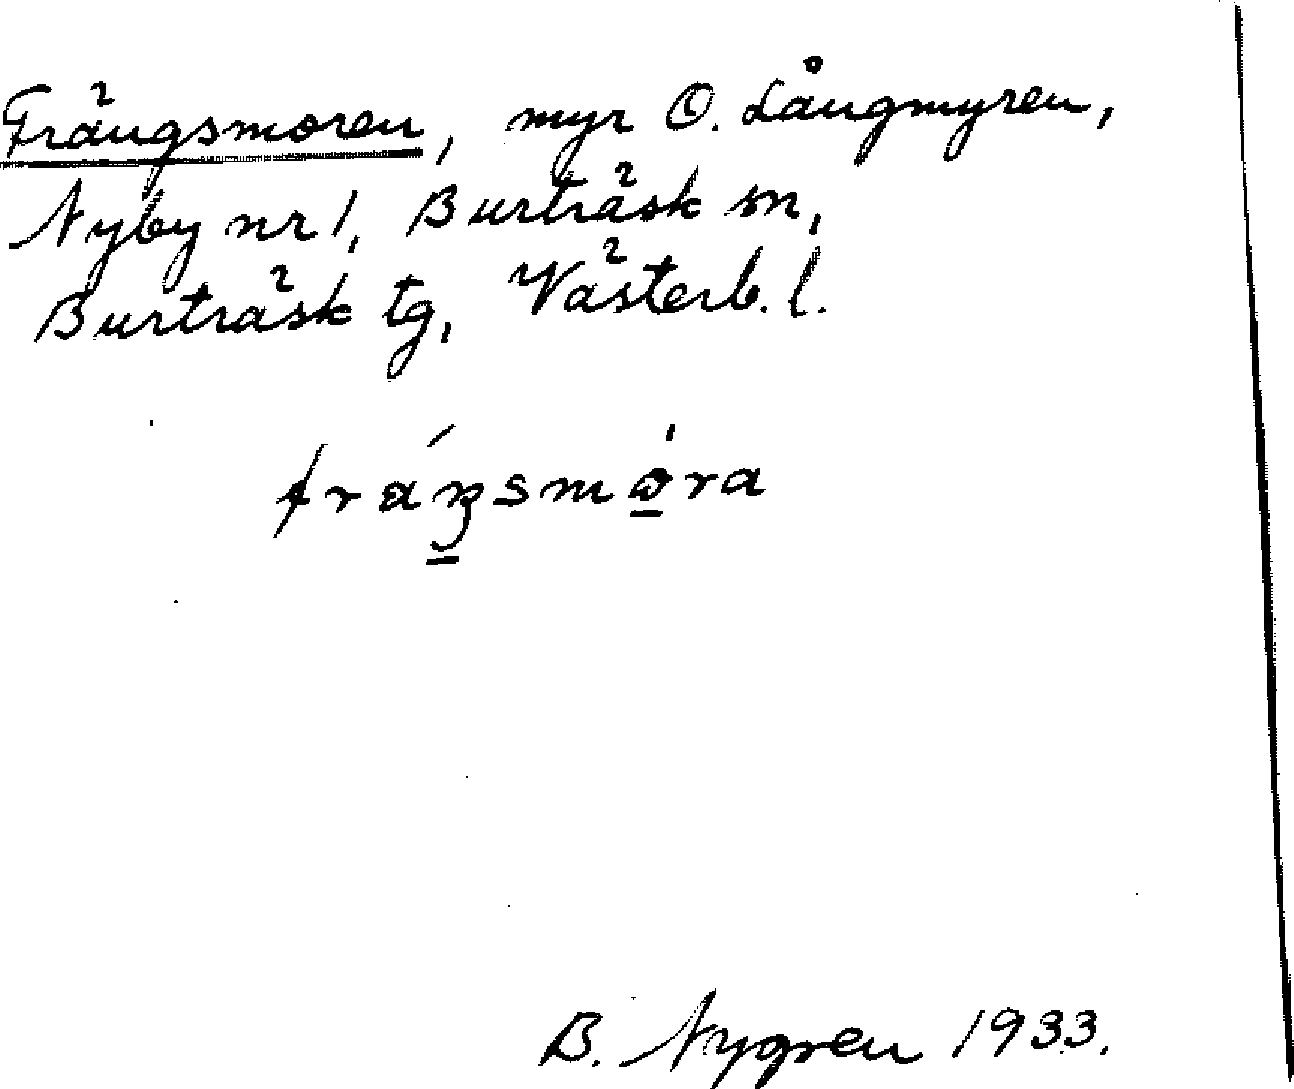 Frängsmoren, myr O. Långmyren,
Nyby nr 1, Burträsk sn,
Burträsk tg, Västerb. l.
fráŋsmóra
B. Nygren 1933.